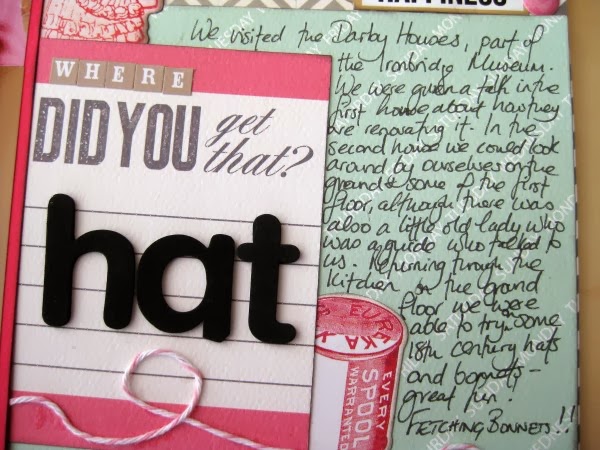 HAPPINESS
WHERE
DID YOU get that?
hat
We visited the Darby Houses, part of
the Ironbridge Museum.
We were given a talk in the
first house about how they
are renovating it. In the
second house we could look
around by ourselves on the
ground & some of the first
floor, although there was
also a little old lady who
was a guide who talked to
us. Returning through the
kitchen on the ground
floor we were
able to try on some
18th century hats
and bonnets -
great fun!
FETCHING BONNETS!!
EUREKA
EVERY
SPOOL
WARRANTED